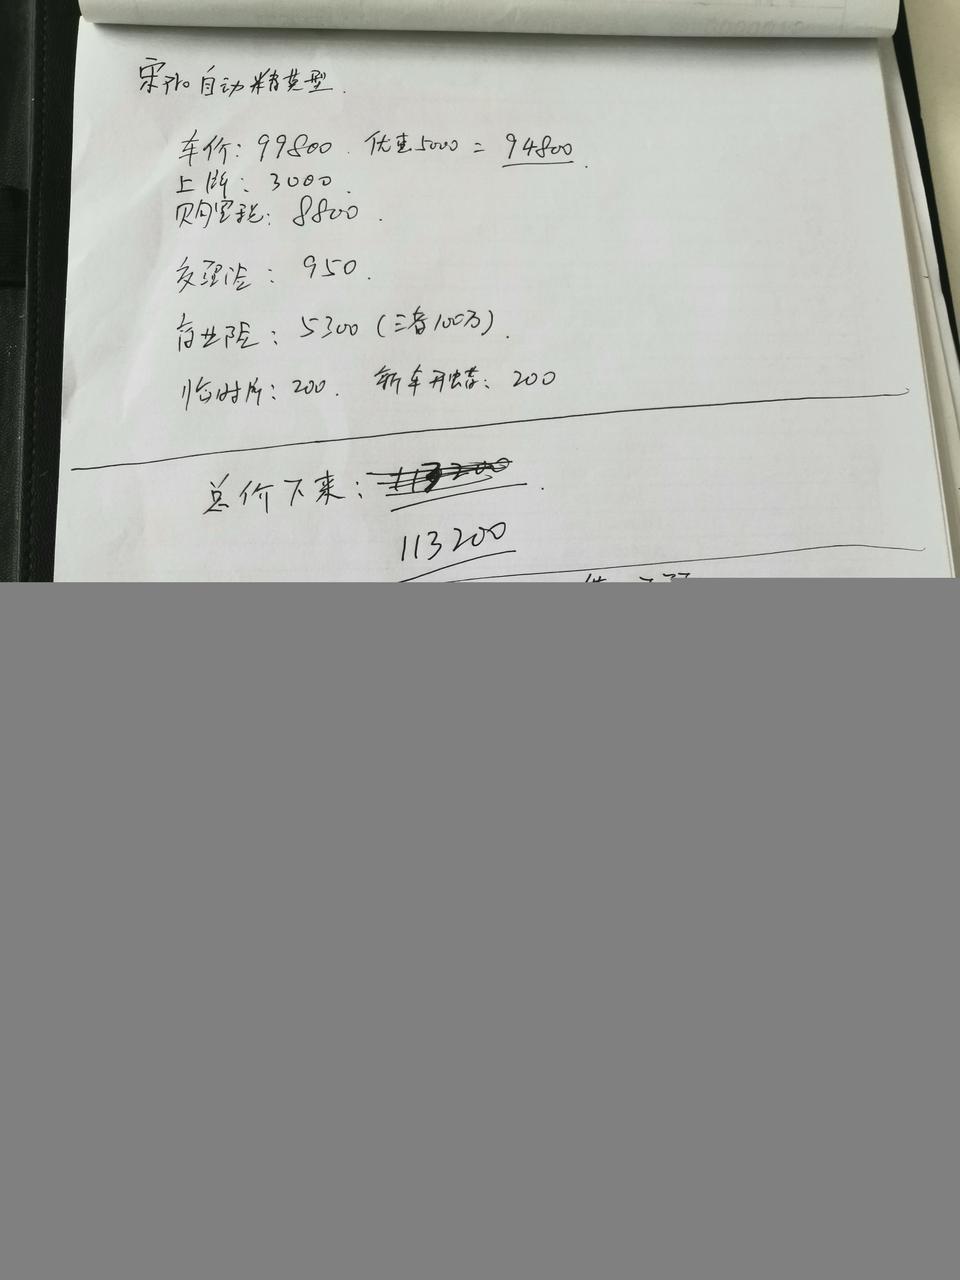 宋Pro 自动精英型.
车价: 99800. 优惠5000 = 94800.
上牌: 3000.
购置税: 8800.
交强险: 950.
商业险: 5300 (三者100万).
临时牌: 200. 新车开蜡: 200
总价下来: 113200.
113200